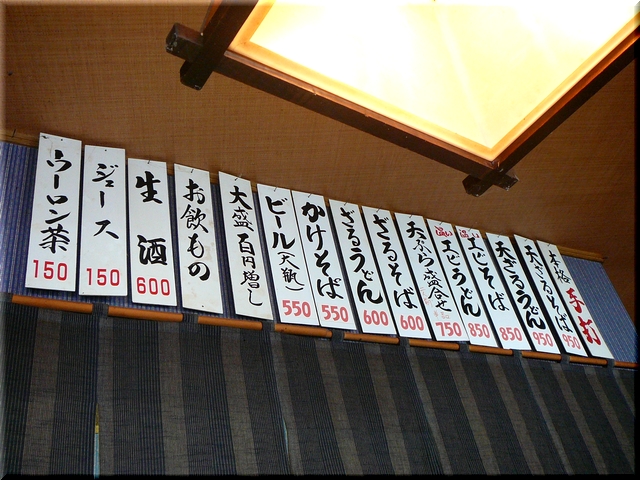 本格 手打
天ざるそば 950
天ざるうどん 950
温い エビそば 850
温い エビうどん 850
天ぷら盛合せ 750
ざるそば 600
ざるうどん 600
かけそば 550
ビール(大瓶) 550
大盛百円増し
お飲もの
生酒 600
ジュース 150
ウーロン茶 150